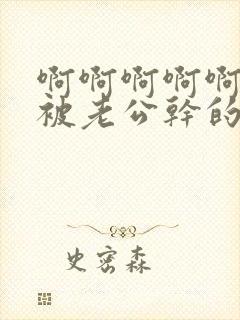 啊啊啊啊啊
被老公幹的
史密森